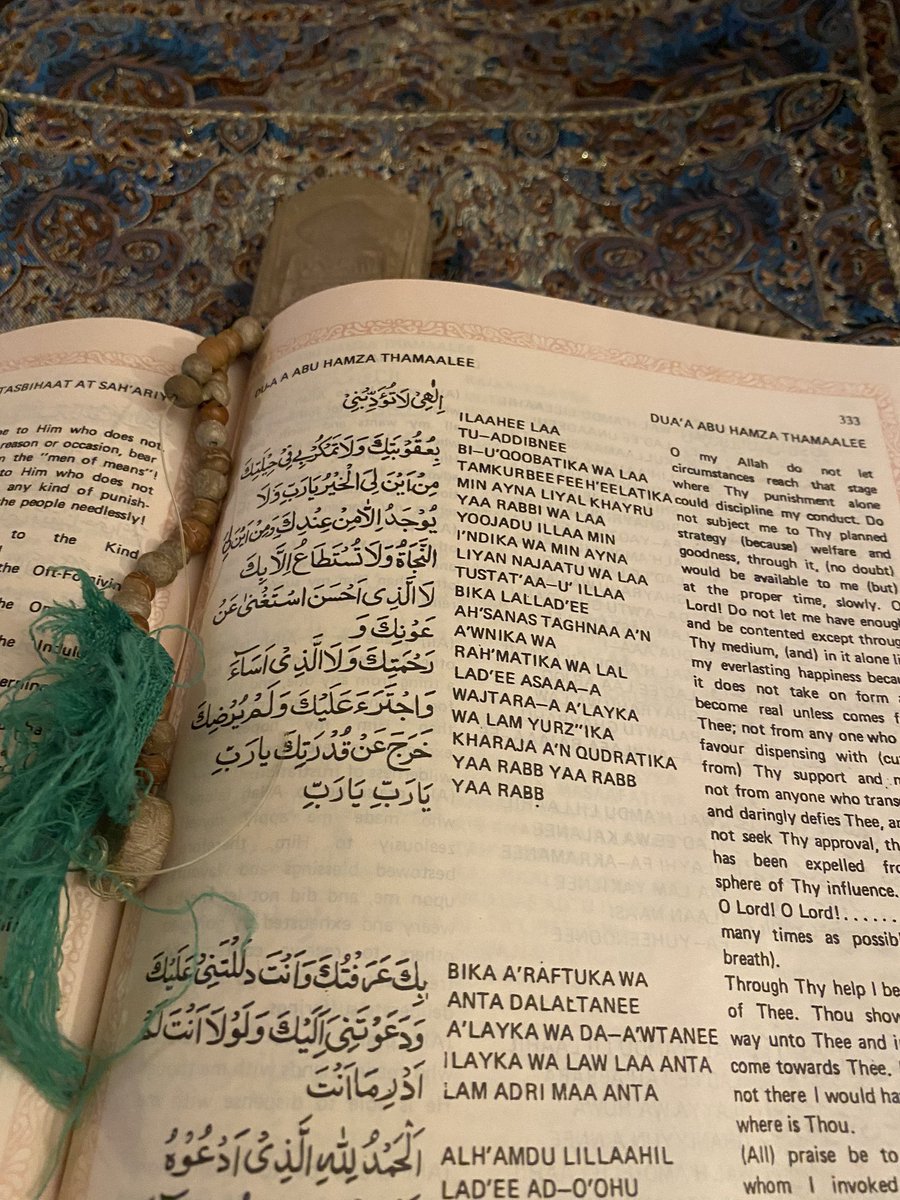 TASBIHAAT AT SAH'ARIY
to Him who does not
reason or occasion, bear
the "men of means"!
to Him who does not
any kind of punish-
the people needlessly!
to the Kind
the Oft-Forgivin
the
the Indul
333
DUA A ABU HAMZA THAMAALEE
DUA'A ABU HAMZA THAMAALEE
اِلٰهِىْ لَا تُؤَدِّبْنِىْ
بِعُقُوْبَتِكَ وَلَا تَمْكُرْ بِىْ فِىْ حِيْلَتِكَ
مِنْ اَيْنَ لِىَ الْخَيْرُ يَا رَبِّ وَلَا
يُوْجَدُ اِلَّا مِنْ عِنْدِكَ وَمِنْ اَيْنَ لِىَ
النَّجَاةُ وَلَا تُسْتَطَاعُ اِلَّا بِكَ
لَا الَّذِىْ اَحْسَنَ اسْتَغْنٰى عَنْ
عَوْنِكَ وَ
رَحْمَتِكَ وَلَا الَّذِىْ اَسَاءَ
وَاجْتَرَءَ عَلَيْكَ وَلَمْ يُرْضِكَ
خَرَجَ عَنْ قُدْرَتِكَ يَا رَبِّ
يَا رَبِّ يَا رَبِّ
ILAAHEE LAA
TU–ADDIBNEE
BI–U'QOOBATIKA WA LAA
TAMKURBEE FEE H'EELATIKA
MIN AYNA LIYAL KHAYRU
YAA RABBI WA LAA
YOOJADU ILLAA MIN
I'NDIKA WA MIN AYNA
LIYAN NAJAATU WA LAA
TUSTAT'AA–U' ILLAA
BIKA LALLAD'EE
AH'SANAS TAGHNAA A'N
A'WNIKA WA
RAH'MATIKA WA LAL
LAD'EE ASAAA–A
WAJTARA–A A'LAYKA
WA LAM YURZ''IKA
KHARAJA A'N QUDRATIKA
YAA RABB YAA RABB
YAA RABB
O my Allah do not let
circumstances reach that stage
where Thy punishment alone
could discipline my conduct. Do
not subject me to Thy planned
strategy (because) welfare and
goodness, through it, (no doubt)
would be available to me (but)
at the proper time, slowly. O
Lord! Do not let me have enough
and be contented except throug
Thy medium, (and) in it alone li
my everlasting happiness becau
it does not take on form a
become real unless comes f
Thee; not from any one who
favour dispensing with (cu
from) Thy support and
not from anyone who trans
and daringly defies Thee, a
not seek Thy approval, th
has been expelled fro
sphere of Thy influence.
O Lord! O Lord!......
many times as possibl
breath).
بِكَ عَرَفْتُكَ وَاَنْتَ دَلَلْتَنِىْ عَلَيْكَ
وَدَعَوْتَنِىْ اِلَيْكَ وَلَوْلَا اَنْتَ لَمْ
اَدْرِ مَا اَنْتَ
BIKA A'RAFTUKA WA
ANTA DALALTANEE
A'LAYKA WA DA–A'WTANEE
ILAYKA WA LAW LAA ANTA
LAM ADRI MAA ANTA
Through Thy help I be
of Thee. Thou show
way unto Thee and i
come towards Thee.
not there I would ha
where is Thou.
اَلْحَمْدُ لِلّٰهِ الَّذِىْ اَدْعُوْهُ
ALH'AMDU LILLAAHIL
LAD'EE AD–O'OHU
(All) praise be to
whom I invoked